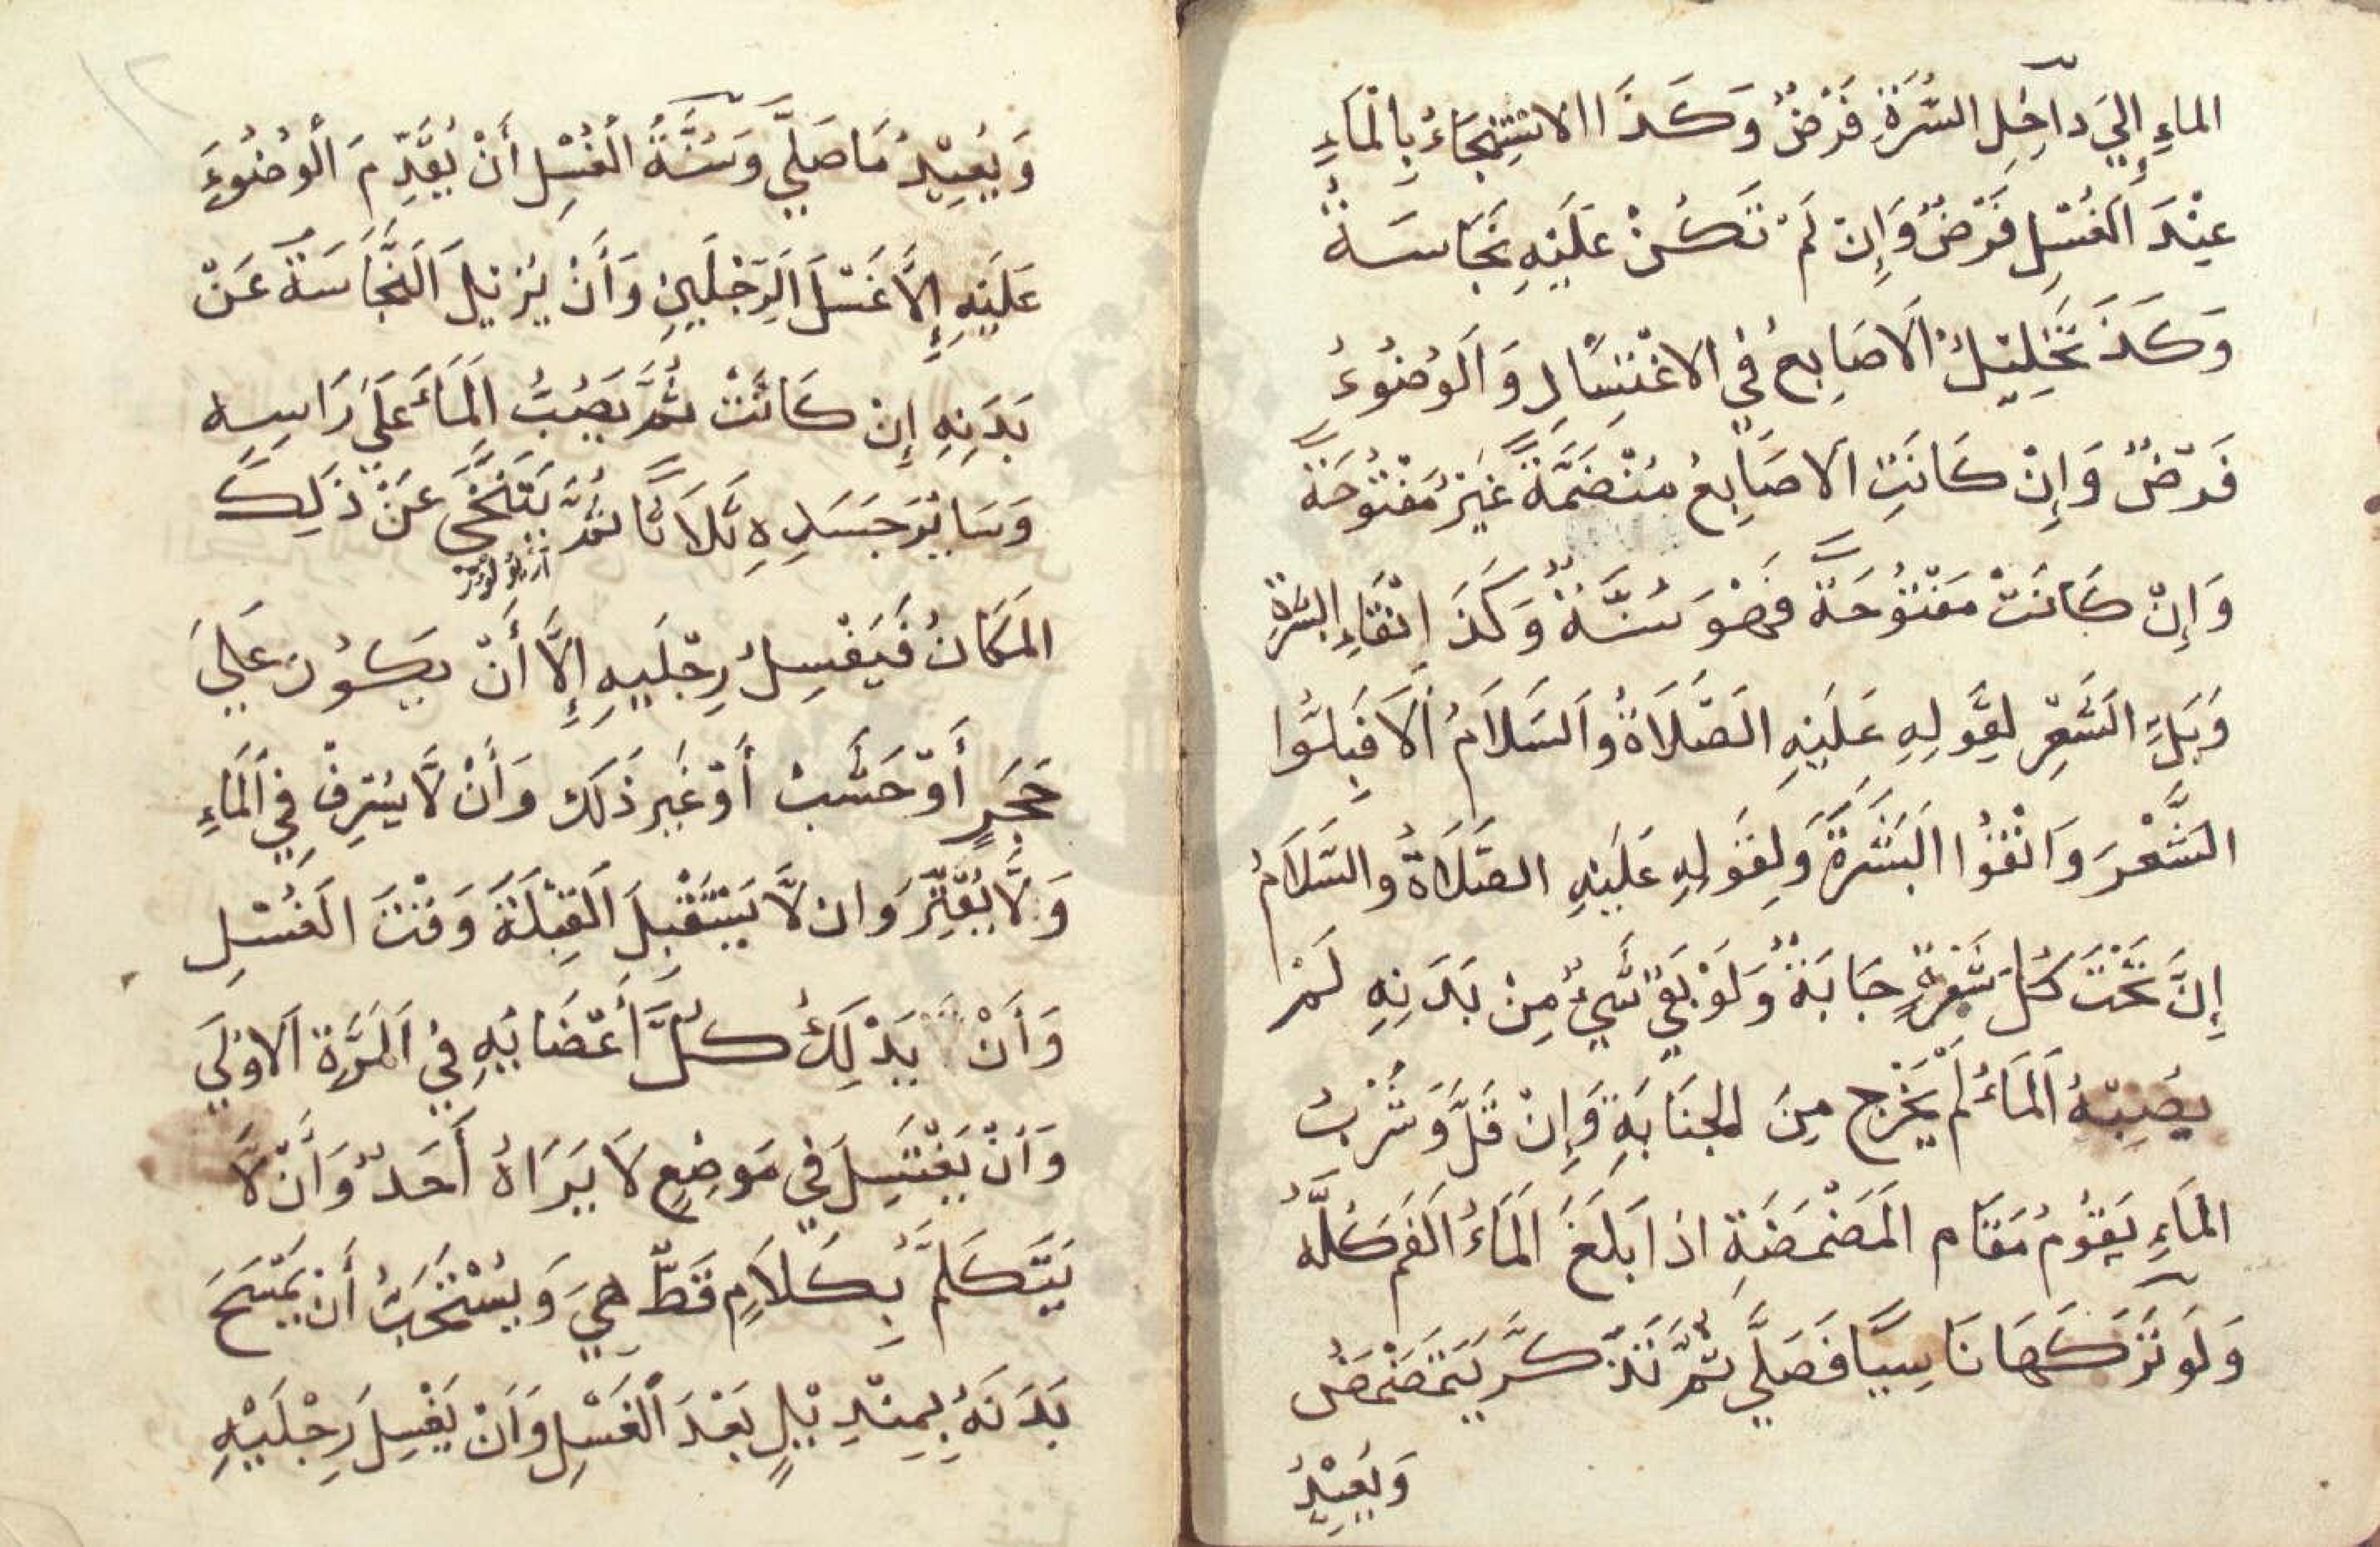 الماءِ إِليَ داٰخِلِ السُّرَّةِ فَرْضٌ وَكَذَا الاسْتِنْجَاءُ بِالْمَاءِ
عِنْدَ الغُسْلِ فَرْضٌ وَإِنْ لَمْ تَكُنْ عَلَيْهِ نَجَاسَةٌ
وَكَذَ تَخْلِيْلُ الَاصَابِعِ فِي الاغْتِسَالِ وَالَوُضُوُءِ
فَرْضٌ وَإِنْ كَانَتِ الاصَابِعُ مُنْضَمَّةً غَيْرَ مَفْتُوْحَةً
وَإِنْ كَانَتْ مَفْتُوْحَةً فَهْوَ سُنَّةٌ وَكَذَ اِنْقَاءِ البَشَرَةِ
وَبَلِّ الشَّعْرِ لِقَوْلِهِ عَلَيْهِ الصَّلَاةُ وَالسَلَامُ اَلَا فَبِلُّوا
الشَّعْرَ وَانْقُوا البَشَرَةَ وَلِقَوْلِهِ عَلَيْهِ الصَّلَاةُ والسَّلَامُ
إِنَّ تَحْتَ كُلِّ شَعْرَةٍ جَابَةٌ وَلَوْ بَقِيَ شَيْءٌ مِنْ بَدَنِهِ لَمْ
يُصِبْهُ الْمَاءُ لَمْ يَخْرُجْ مِنَ الجَنَابَةِ وَإِنْ قَلَّ وَشُرْبُ
الْمَاءِ يَقُومُ مَقَام الْمَضْمَضَةِ اذا بَلَغَ الْمَاءُ الفَمَ كُلَّهُ
وَلَوْ تَرَكَهَا نَاسِيًا فَصَلَّي ثُمَّ تَذَكَّرَ يَتَمَضْمَضُ
وَيُعِيْدُ
وَيُعِيْدُ مَا صَلَّيَ وَسُنَّةُ الْغُسْلِ أَنْ يُقَدِّمَ الْوُضُوُءَ
عَلَيْهِ إِلَّا غَسْلَ الرِّجْلَيْنِ وَأَنْ يُزِيْلَ النَّجَاسَةَ عَنْ
بَدَنِهِ إِنْ كَانَتْ ثُمَّ يَصُبُّ الْمَاءَ عَلَي رَاسِهِ
وَسَايْرَ جَسَدِهِ ثَلَاثًا ثُمَّ يَتَنَحَّي عَنْ ذَلِكَ
المَكَانُ فَيَغْسِلُ رِجْلَيهِ إِلَّا أَنْ يَكُوُنَ عَلَيَ
حَجَرٍ أَوْ خَشَبٍ أَوْ غَيْرِ ذَلَكَ وَأَنْ لَا يُسْرِفْ فِي الْمَاءِ
وَلَا يُقَتِّرَ وَان لَا يَسْتَقْبِلَ القِبْلَةَ وَقْتَ الغُسْلِ
وَأَنْ يَدْلِكَ كُلَّ أَعْضَايْهِ فِي الْمَرَّةِ الاوْلَي
وَأَنْ يَغْتَسِلَ فِي مَوضِعٍ لَا يَرَاهُ أَحَدٌ وَأَنْ لَا
يَتَكَلَّمَ بِكَلَامٍ قَطّ هِيَ وَيُسْتَحَبُّ أَنْ يَمْسَحَ
بَدَنَهُ بِمِنْدِيْلٍ بَعْدَ الْغَسْلِ وَاَنْ يَغْسِلَ رِجْلَيْهِ